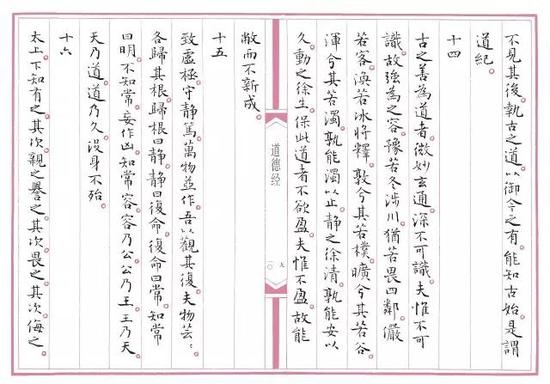 不見其後。執古之道。以御今之有。能知古始。是謂
道紀。
十四
古之善為道者。微妙玄通。深不可識。夫惟不可
識。故強為之容。豫若冬涉川。猶若畏四鄰。嚴
若客。渙若冰將釋。敦兮其若樸。曠兮其若谷。
渾兮其若濁。孰能濁以止。靜之徐清。孰能安以
久。動之徐生。保此道者不欲盈。夫惟不盈。故能
道德经
九
一〇
敝而不新成。
十五
致虛極。守靜篤。萬物並作。吾以觀其復。夫物芸:。
各歸其根。歸根曰靜。靜曰復命。復命曰常。知常
曰明。不知常。妄作凶。知常容。容乃公。公乃王。王乃天
天乃道。道乃久。沒身不殆。
十六
太上。下知有之。其次。親之譽之。其次畏之。其次侮之。